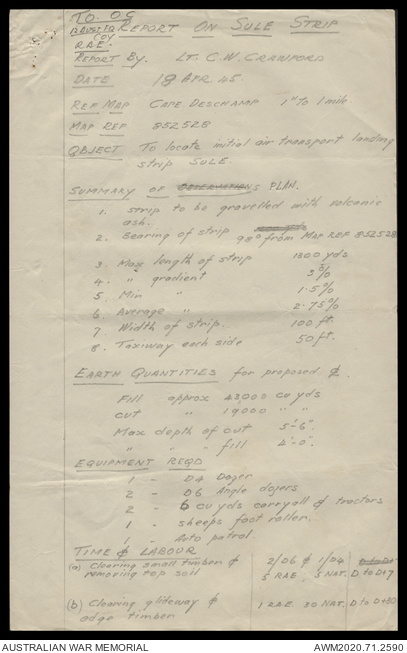 TO OC
REPORT ON SULE STRIP
COY
R.A.E.
REPORT BY. LT. C.W. CRANFORD
DATE 18 APR. 45.
REF MAP CAPE DESCHAMP 1" TO 1 mile
MAP REF 852528
OBJECT To locate initial air transport landing
strip SULE.
SUMMARY OF PLAN.
1. Strip to be gravelled with volcanic
ash.
2. Bearing of strip 98° from MAP REF 852528
3. Max length of strip 1800 yds
4. " gradient 3%
5. Min " 1.5%
6. Average " 2.75%
7 Width of strip. 100 ft.
8. Taxiway each side 50 ft.
EARTH QUANTITIES for proposed ȼ.
Fill approx 43000 cu yds
cut " 19000 " "
Max depth of cut 5'-6".
" " - fill 4'-0".
EQUIPMENT REQD
1 - D4 Dozer
2 - D6 Angle dozers
2 - 6 cu yds carryall & tractors
1 - sheeps foot roller.
1 - Auto patrol
TIME & LABOUR
(a) Clearing small timber & 2/D6 & 1/D4
removing top soil 5 RAE. 5 NAT. D to D+7
(b) Clearing glideway & 1 RAE 30 NAT. D to D+30
edge timber
AUSTRALIAN WAR MEMORIAL AWM2020.71.2590